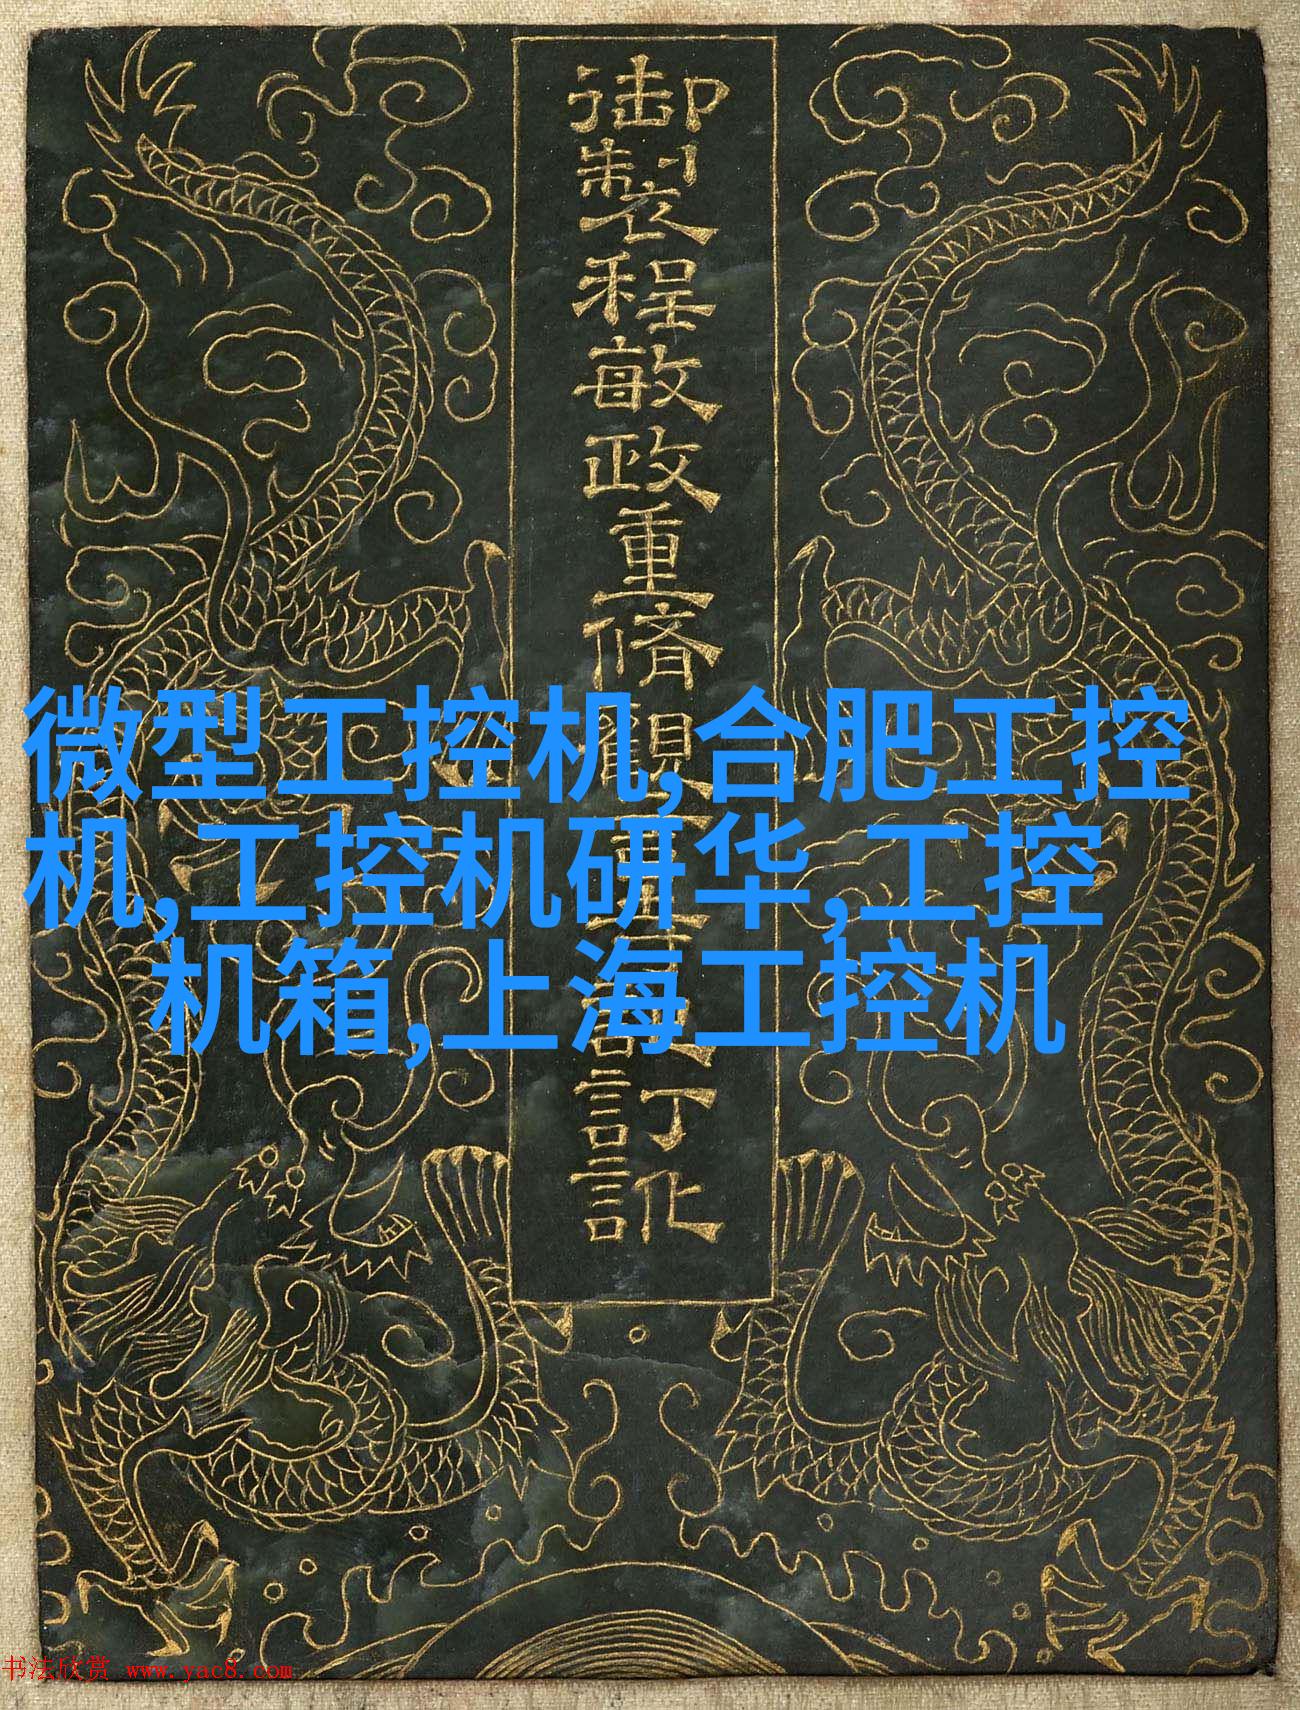 御製程敏政重脩觀訂訛
微型工控机,合肥工控
机,工控机研华,工控
机箱,上海工控机
书法欣赏 www.yac8.com